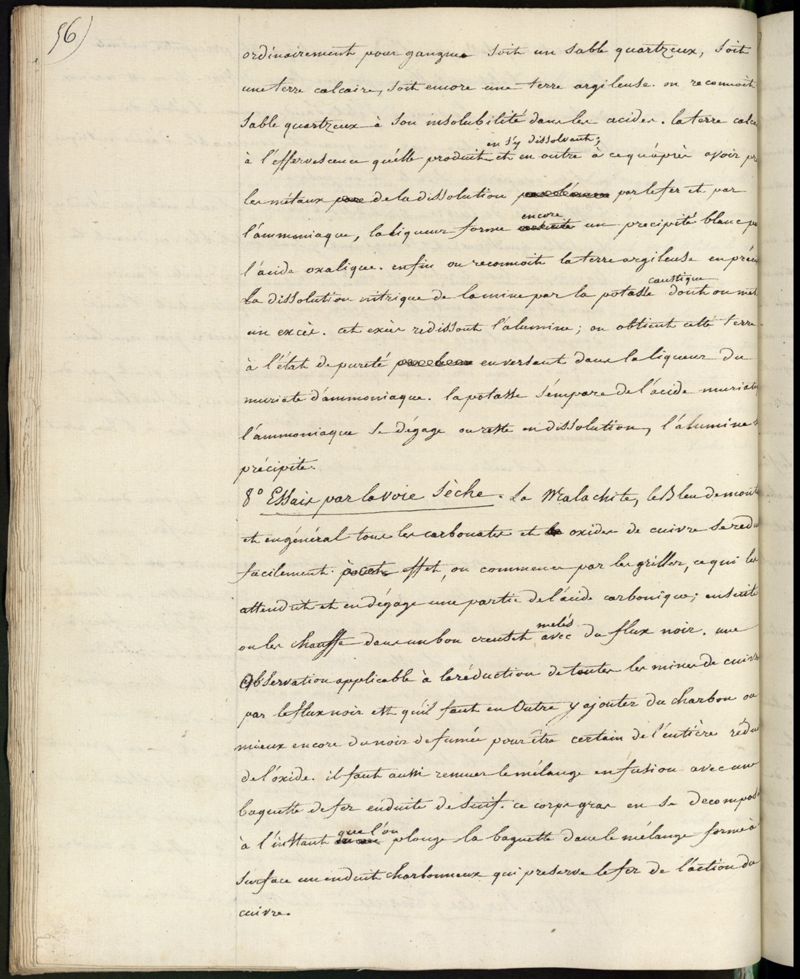 56)
ordinairement pour gangue soit un sable quartzeux, soit
une terre calcaire, soit encore une terre argileuse. on reconnoit
sable quartzeux à son insolubilité dans les acides. la terre calc
en s'y dissolvant;
à l'effervescence qu'elle produit et en outre à ce qu'après avoir pr
les métaux de la dissolution par le fer et par
encore
l'ammoniaque, la liqueur forme un précipité blanc p
l'acide oxalique. enfin on reconnoit la terre argileuse en préci
caustique
la dissolution nitrique de la mine par la potasse dont on met
un excès. cet excès redissout l'alumine; on obtient cette terre
à l'état de pureté en versant dans la liqueur du
muriate d'ammoniaque. la potasse s'empare de l'acide muriati
l'ammoniaque se dégage ou reste en dissolution, l'alumine s
précipite.
8° Essais par la voie sèche. La Malachite, le Bleu de mont
et en général tous les carbonates et oxides de cuivre se redu
facilement. à cet effet, on commence par les griller, ce qui les
attendrit et en dégage une partie de l'acide carbonique; ensuite
melés
on les chauffe dans un bon creuset avec du flux noir. une
Observation applicable à la réduction de toutes les mines de cuivre
par le flux noir est qu'il faut en Outre y ajouter du charbon ou
mieux encore du noir de fumée pour être certain de l'entière rédu
de l'oxide. il faut aussi remuer le mélange en fusion avec une
baguette de fer enduite de suif. ce corps gras en se decompos
que l'on
à l'instant plonge la baguette dans le mélange forme à
surface un enduit charbonneux qui preserve le fer de l'action du
cuivre.